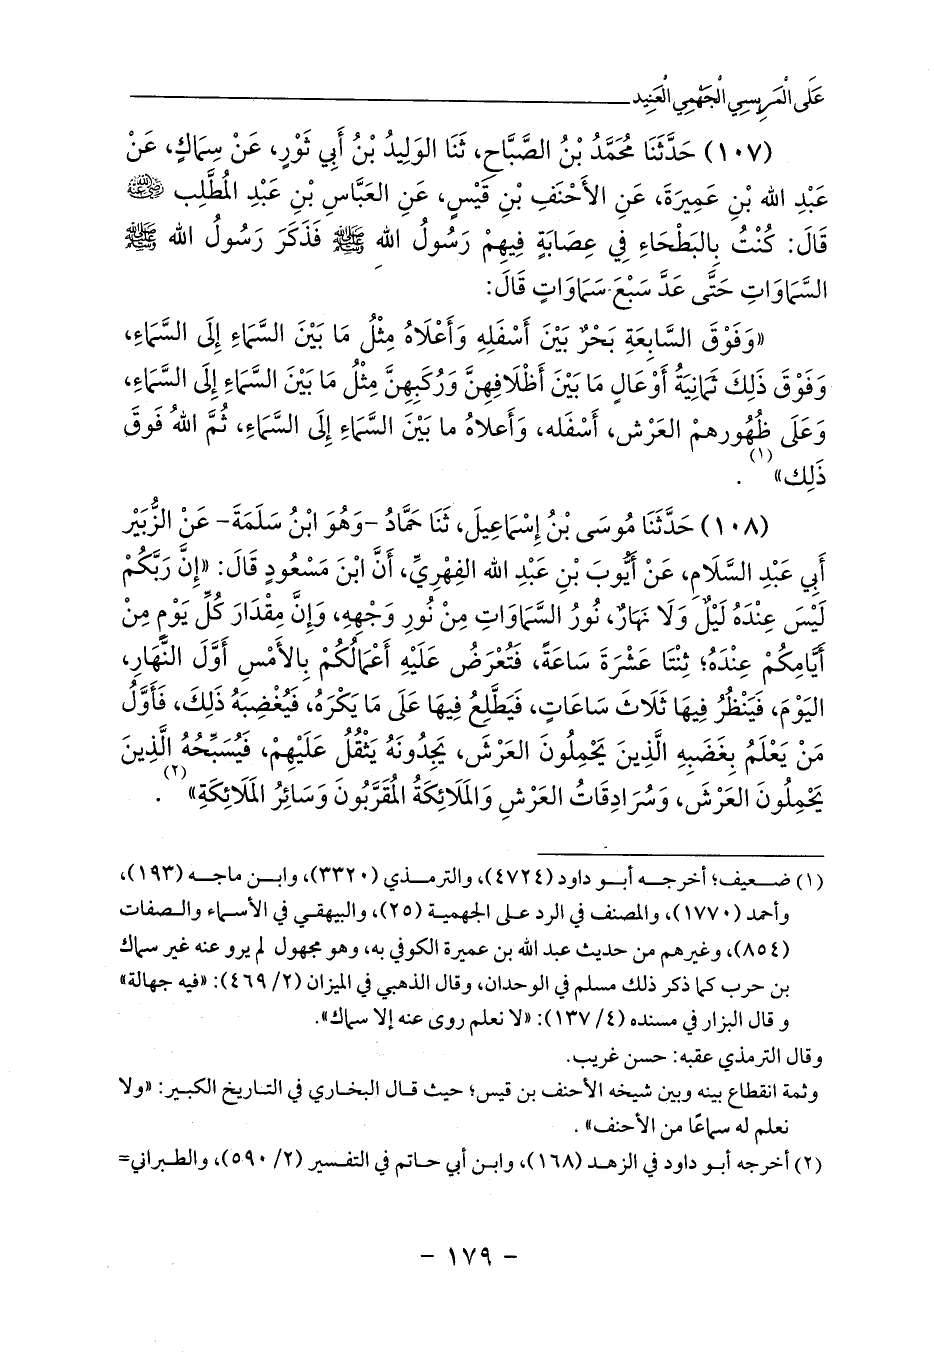 عَلَى الْمَرِيسِي الْجَهْمِي الْعَنِيد
(١٠٧) حَدَّثَنَا مُحَمَّدُ بْنُ الصَّبَّاحِ، ثَنَا الوَلِيدُ بْنُ أَبِي ثَوْرٍ، عَنْ سِمَاكٍ، عَنْ
عَبْدِ الله بْنِ عَمِيرَةَ، عَنِ الأَحْنَفِ بْنِ قَيْسٍ، عَنِ العَبَّاسِ بْنِ عَبْدِ المُطَّلِب رضي الله عنه
قَالَ: كُنْتُ بِالبَطْحَاءِ فِي عِصَابَةٍ فِيهِمْ رَسُولُ الله ﷺ فَذَكَرَ رَسُولُ الله ﷺ
السَّمَاوَاتِ حَتَّى عَدَّ سَبْعَ سَمَاوَاتٍ قَالَ:
«وَفَوْقَ السَّابِعَةِ بَحْرٌ بَيْنَ أَسْفَلِهِ وَأَعْلَاهُ مِثْلُ مَا بَيْنَ السَّمَاءِ إِلَى السَّمَاءِ،
وَفَوْقَ ذَلِكَ ثَمَانِيَةُ أَوْعَالٍ مَا بَيْنَ أَظْلَافِهِنَّ وَرُكَبِهِنَّ مِثْلُ مَا بَيْنَ السَّمَاءِ إِلَى السَّمَاءِ،
وَعَلَى ظُهُورِهِمْ العَرْش، أَسْفَله، وَأَعلاهُ ما بَيْنَ السَّمَاءِ إِلَى السَّمَاءِ، ثُمَّ اللهُ فَوقَ
ذَلِك»(١).
(١٠٨) حَدَّثَنَا مُوسَى بْنُ إِسْمَاعِيلَ، ثَنَا حَمَّادُ -وَهُوَ ابْنُ سَلَمَةَ- عَنْ الزُّبَيْرِ
أَبِي عَبْدِ السَّلَامِ، عَنْ أَيُّوبَ بْنِ عَبْدِ الله الفِهْرِيِّ، أَنَّ ابْنَ مَسْعُودٍ قَالَ: «إِنَّ رَبَّكُمْ
لَيْسَ عِنْدَهُ لَيْلٌ وَلَا نَهارٌ، نُورُ السَّمَاوَاتِ مِنْ نُورِ وَجْهِهِ، وَإِنَّ مِقْدَارَ كُلِّ يَوْمٍ مِنْ
أَيَّامِكُمْ عِنْدَهُ؛ ثِنْتَا عَشْرَةَ سَاعَةً، فَتُعْرَضُ عَلَيْهِ أَعْمَالُكُمْ بِالأَمْسِ أَوَّلَ النَّهَارِ،
اليَوْمَ، فَيَنْظُرُ فِيهَا ثَلَاثَ سَاعَاتٍ، فَيَطَّلِعُ فِيهَا عَلَى مَا يَكْرَهُ، فَيُغْضِبَهُ ذَلِكَ، فَأَوَّلُ
مَنْ يَعْلَمُ بِغَضَبِهِ الَّذِينَ يَحْمِلُونَ العَرْشَ، يَجِدُونَهُ يَثْقُلُ عَلَيْهِمْ، فَيُسَبِّحُهُ الَّذِينَ
يَحْمِلُونَ العَرْشَ، وَسُرَادِقَاتُ العَرْشِ وَالمَلَائِكَةُ المُقَرَّبُونَ وَسَائِرُ المَلَائِكَةِ»(٢).
(١) ضعيف؛ أخرجه أبو داود (٤٧٢٤)، والترمذي (٣٣٢٠)، وابن ماجه (١٩٣)،
وأحمد (١٧٧٠)، والمصنف في الرد على الجهمية (٢٥)، والبيهقي في الأسماء والصفات
(٨٥٤)، وغيرهم من حديث عبد الله بن عميرة الكوفي به، وهو مجهول لم يرو عنه غير سماك
بن حرب كما ذكر ذلك مسلم في الوحدان، وقال الذهبي في الميزان (٢/ ٤٦٩): «فيه جهالة»
و قال البزار في مسنده (٤/ ١٣٧): «لا نعلم روى عنه إلا سماك».
وقال الترمذي عقبه: حسن غريب.
وثمة انقطاع بينه وبين شيخه الأحنف بن قيس؛ حيث قال البخاري في التاريخ الكبير: «ولا
نعلم له سماعًا من الأحنف».
(٢) أخرجه أبو داود في الزهد (١٦٨)، وابن أبي حاتم في التفسير (٢/ ٥٩٠)، والطبراني=
- ١٧٩ -